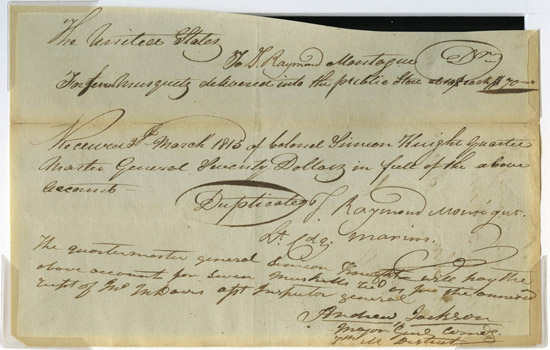 The United States
To J. Raymond Montague Dr
For seven Musquets delivered into the public Store at 10$ each $70
Received 3d March 1815 of Colonel Simeon Knight Quarter
Master General Seventy Dollars in full of the above
account
Duplicates J. Raymond Montegut
Lt Cdg. Marins.
The quartermaster general Simeon Knight will pay the
above account for seven musketts as pr the annexed
recpt of Mr Davis asst Inspector general
Andrew Jackson
Major Genl Comdg
7th M District